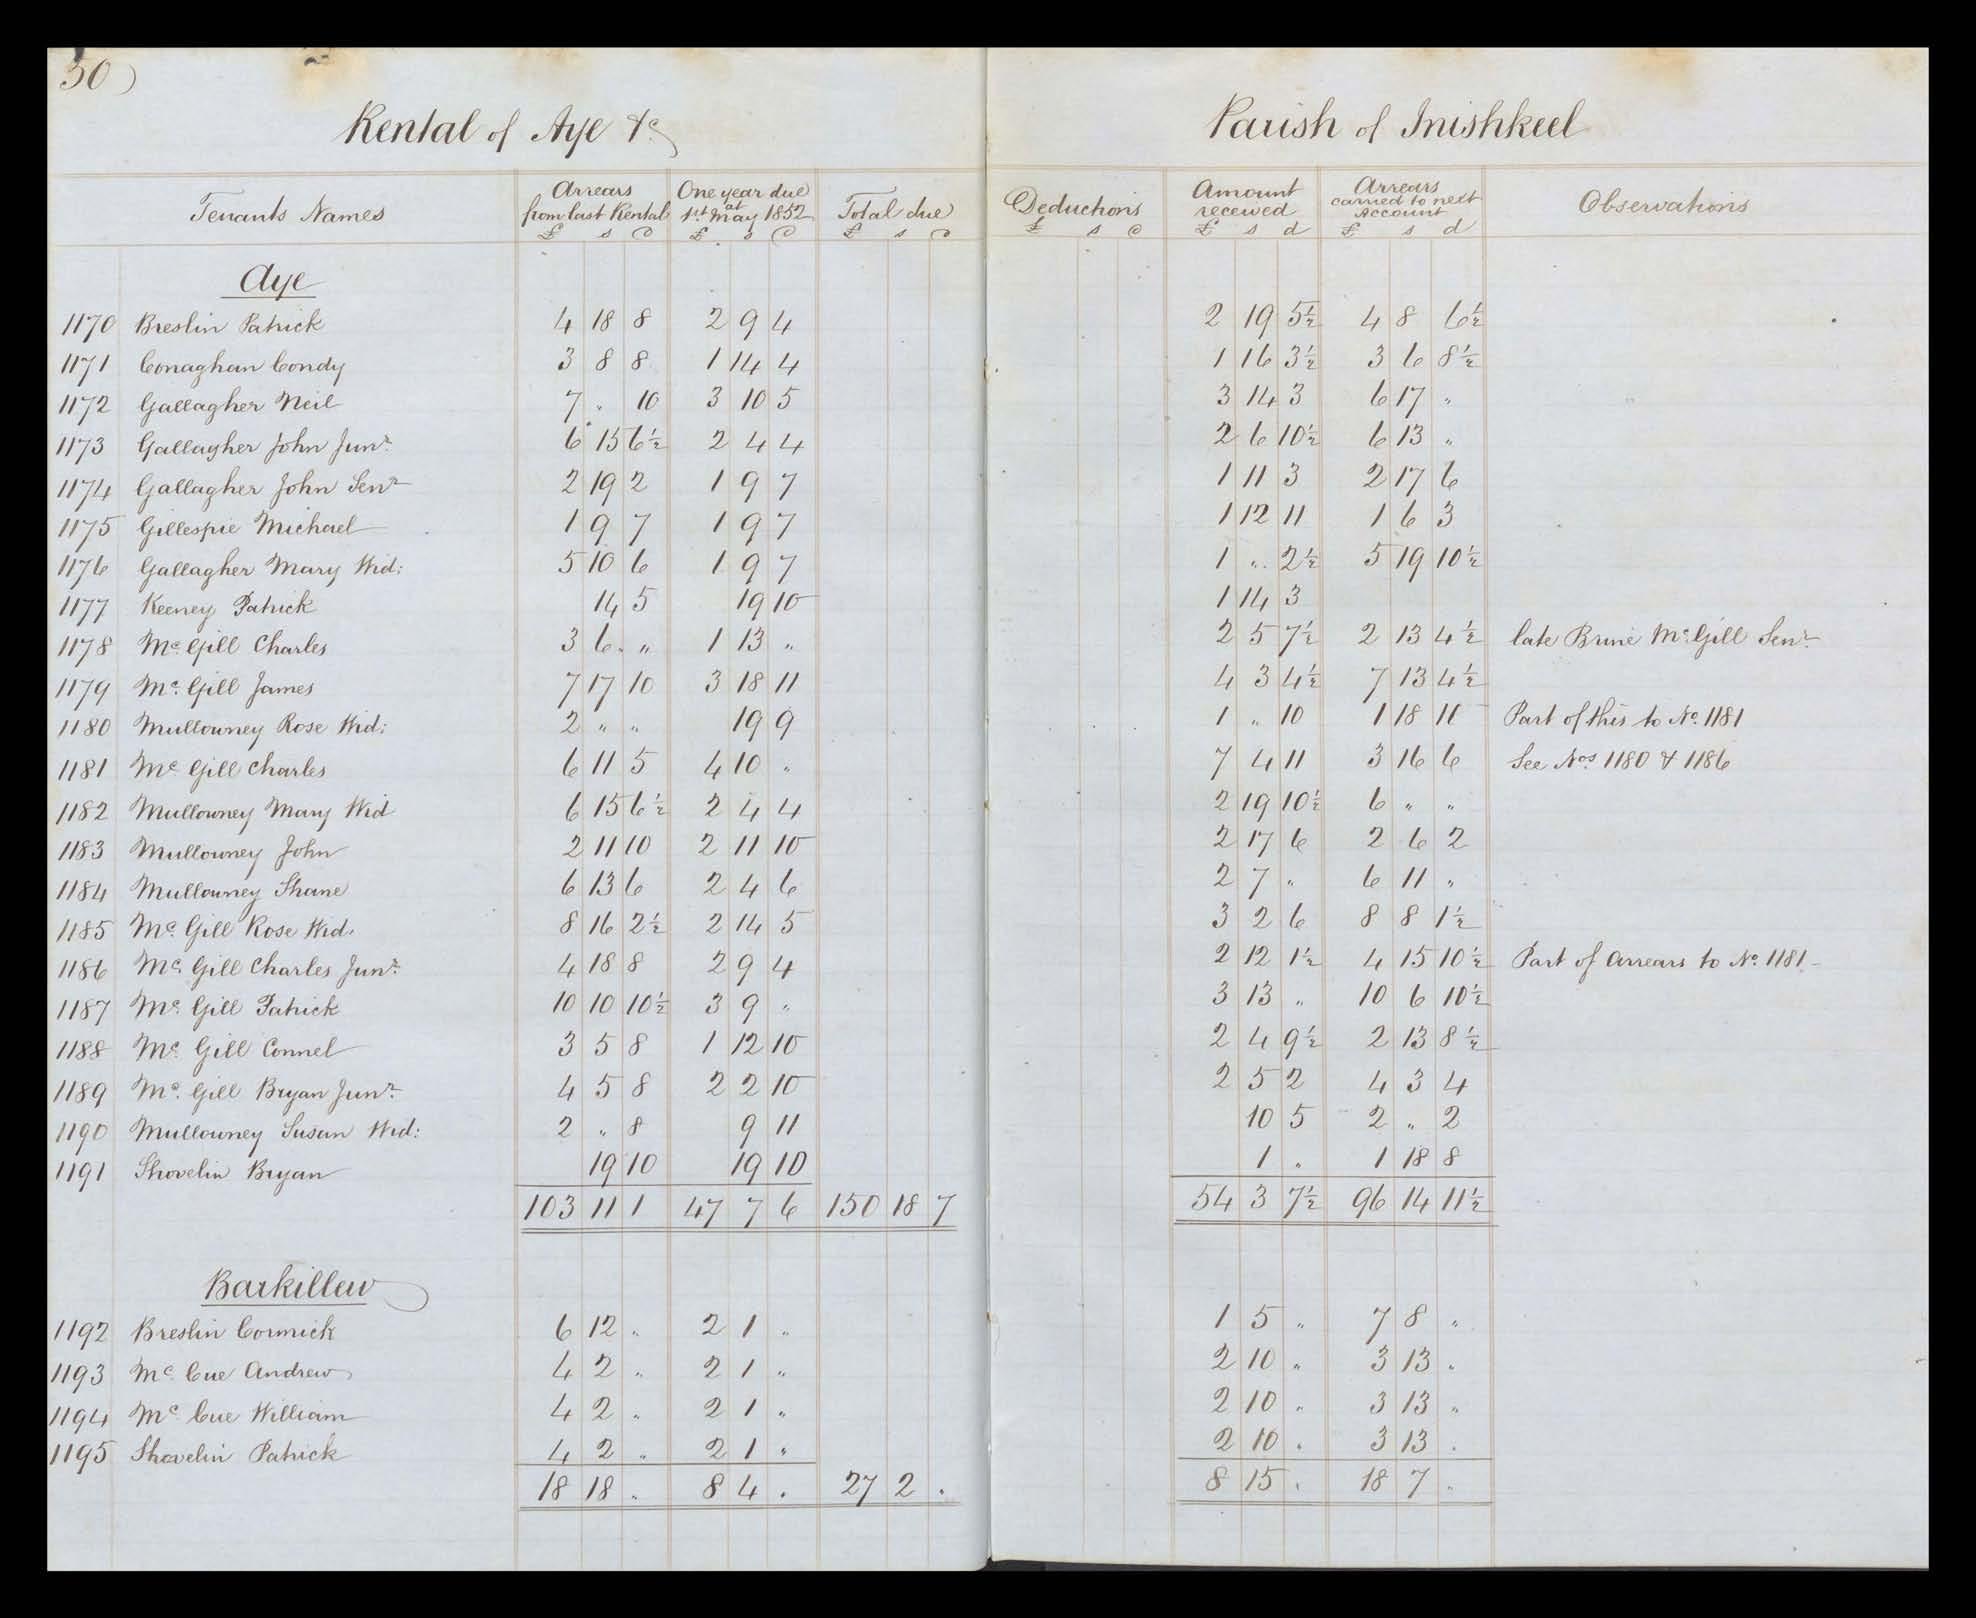 50)
Rental of Aye &c
Parish of Inishkeel
Tenants Names | Arrears from last Rental £ s d | One year due at 1st May 1852 £ s d | Total due £ s d | Deductions £ s d | Amount received £ s d | Arrears carried to next Account £ s d | Observations
Aye
1170 Breslin Patrick 4 18 8 2 9 4 2 19 5½ 4 8 6½
1171 Conaghan Condy 3 8 8 1 14 4 1 16 3½ 3 6 8½
1172 Gallagher Neil 7 " 10 3 10 5 3 14 3 6 17 "
1173 Gallagher John Junr. 6 15 6½ 2 4 4 2 6 10½ 6 13 "
1174 Gallagher John Senr 2 19 2 1 9 7 1 11 3 2 17 6
1175 Gillespie Michael 1 9 7 1 9 7 1 12 11 1 6 3
1176 Gallagher Mary Wid: 5 10 6 1 9 7 1 " 2½ 5 19 10½
1177 Keeney Patrick 14 5 19 10 1 14 3
1178 Mc. Gill Charles 3 6 " 1 13 " 2 5 7½ 2 13 4½ late Brine Mc. Gill Senr.
1179 Mc. Gill James 7 17 10 3 18 11 4 3 4½ 7 13 4½
1180 Mullowney Rose Wid: 2 " " 19 9 1 " 10 1 18 11 Part of this to No. 1181
1181 Mc Gill Charles 6 11 5 4 10 " 7 4 11 3 16 6 See Nos 1180 & 1186
1182 Mullowney Mary Wid 6 15 6½ 2 4 4 2 19 10½ 6 " "
1183 Mullowney John 2 11 10 2 11 10 2 17 6 2 6 2
1184 Mullowney Shane 6 13 6 2 4 6 2 7 " 6 11 "
1185 Mc. Gill Rose Wid. 8 16 2½ 2 14 5 3 2 6 8 8 1½
1186 Mc. Gill Charles Junr. 4 18 8 2 9 4 2 12 1½ 4 15 10½ Part of Arrears to No. 1181
1187 Mc. Gill Patrick 10 10 10½ 3 9 " 3 13 " 10 6 10½
1188 Mc. Gill Connel 3 5 8 1 12 10 2 4 9½ 2 13 8½
1189 Mc. Gill Bryan Junr. 4 5 8 2 2 10 2 5 2 4 3 4
1190 Mullowney Susan Wid: 2 " 8 9 11 10 5 2 " 2
1191 Shovelin Bryan 19 10 19 10 1 " 1 18 8
103 11 1 47 7 6 150 18 7 54 3 7½ 96 14 11½
Barkillew
1192 Breslin Cormick 6 12 " 2 1 " 1 5 " 7 8 "
1193 Mc. Cue Andrew 4 2 " 2 1 " 2 10 " 3 13 "
1194 Mc. Cue William 4 2 " 2 1 " 2 10 " 3 13 "
1195 Shovelin Patrick 4 2 " 2 1 " 2 10 " 3 13 "
18 18 " 8 4 " 27 2 " 8 15 " 18 7 "